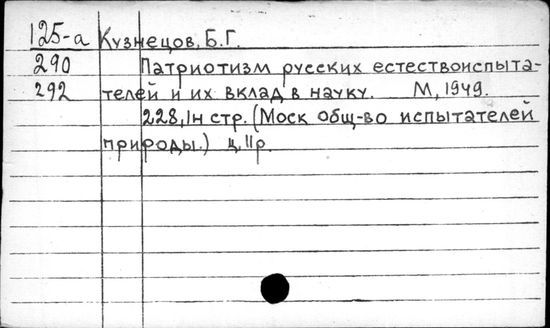 125-а Кузнецов, Б.Г.
290 Патриотизм русских естествоиспыта-
292 телей и их вклад в науку. М, 1949.
228, 1н стр. (Моск общ-во испытателей
природы.) ц. 11р.